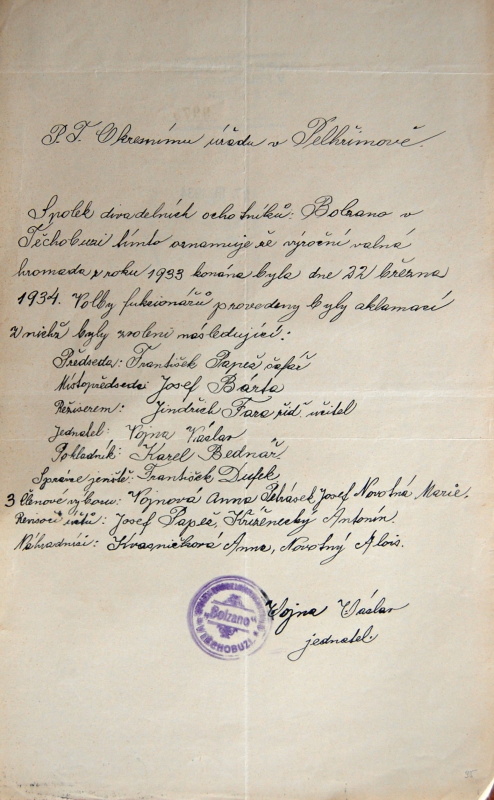 P. T. Okresnímu úřadu v Pelhřimově.
Spolek divadelních ochotníků: Bolzano v
Těchobuzi tímto oznamuje že výroční valná
hromada z roku 1933 konána byla dne 22 března
1934. Volby funkcionářů provedeny byly aklamací
z nichž byly zvoleni následující:
Předseda: František Papeš šafář
Místopředseda: Josef Bárta
Režiserem: Jindřich Fara říd. učitel
Jednatel: Vojna Václav
Pokladník: Karel Bednář
Správce jeviště: František Dufek
3 Členové výboru: Vojnová Anna Petrásek Josef Novotná Marie.
Revisoři účtů: Josef Papeš, Kříženecký Antonín.
Náhradníci: Kvasničková Anna, Novotný Alois.
"Bolzano"
Vojna Václav
jednatel.